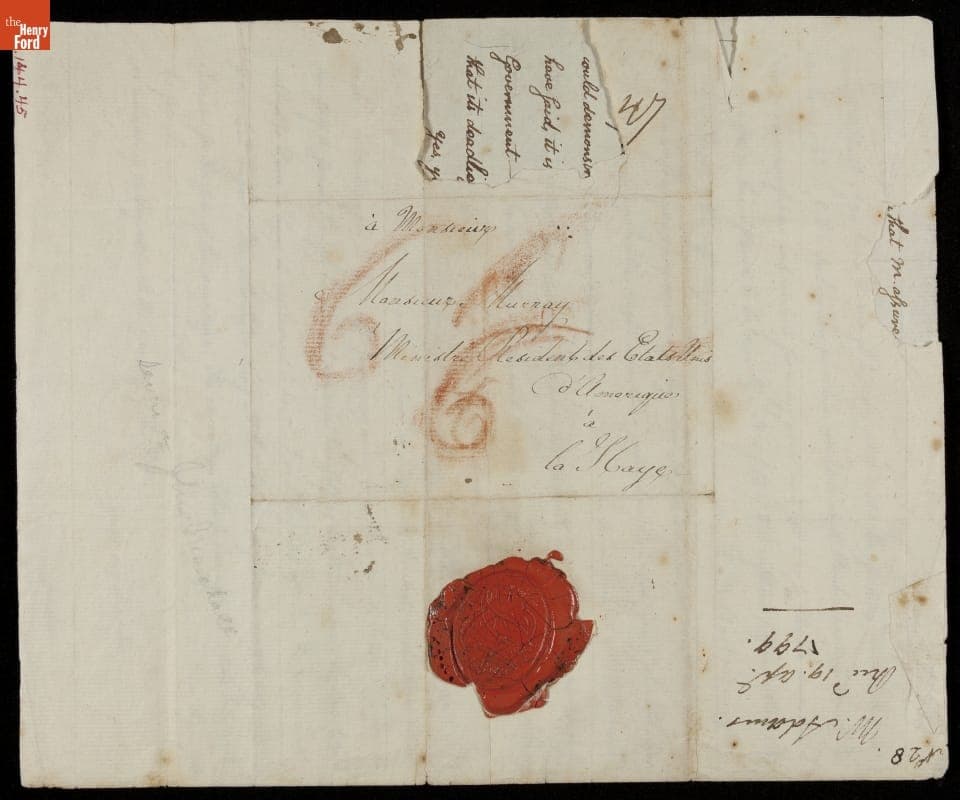 the
Henry
Ford
.144.45
ould demonstr
have said, it is
Government
that its deadlie
Yes, y
that M. assure
à Monsieur
Monsieur Murray
Ministre Resident des Etats Unis
d'Amerique
à
la Haye
Nº 28
Mr. Adams.
Recd 19. apl.
799.